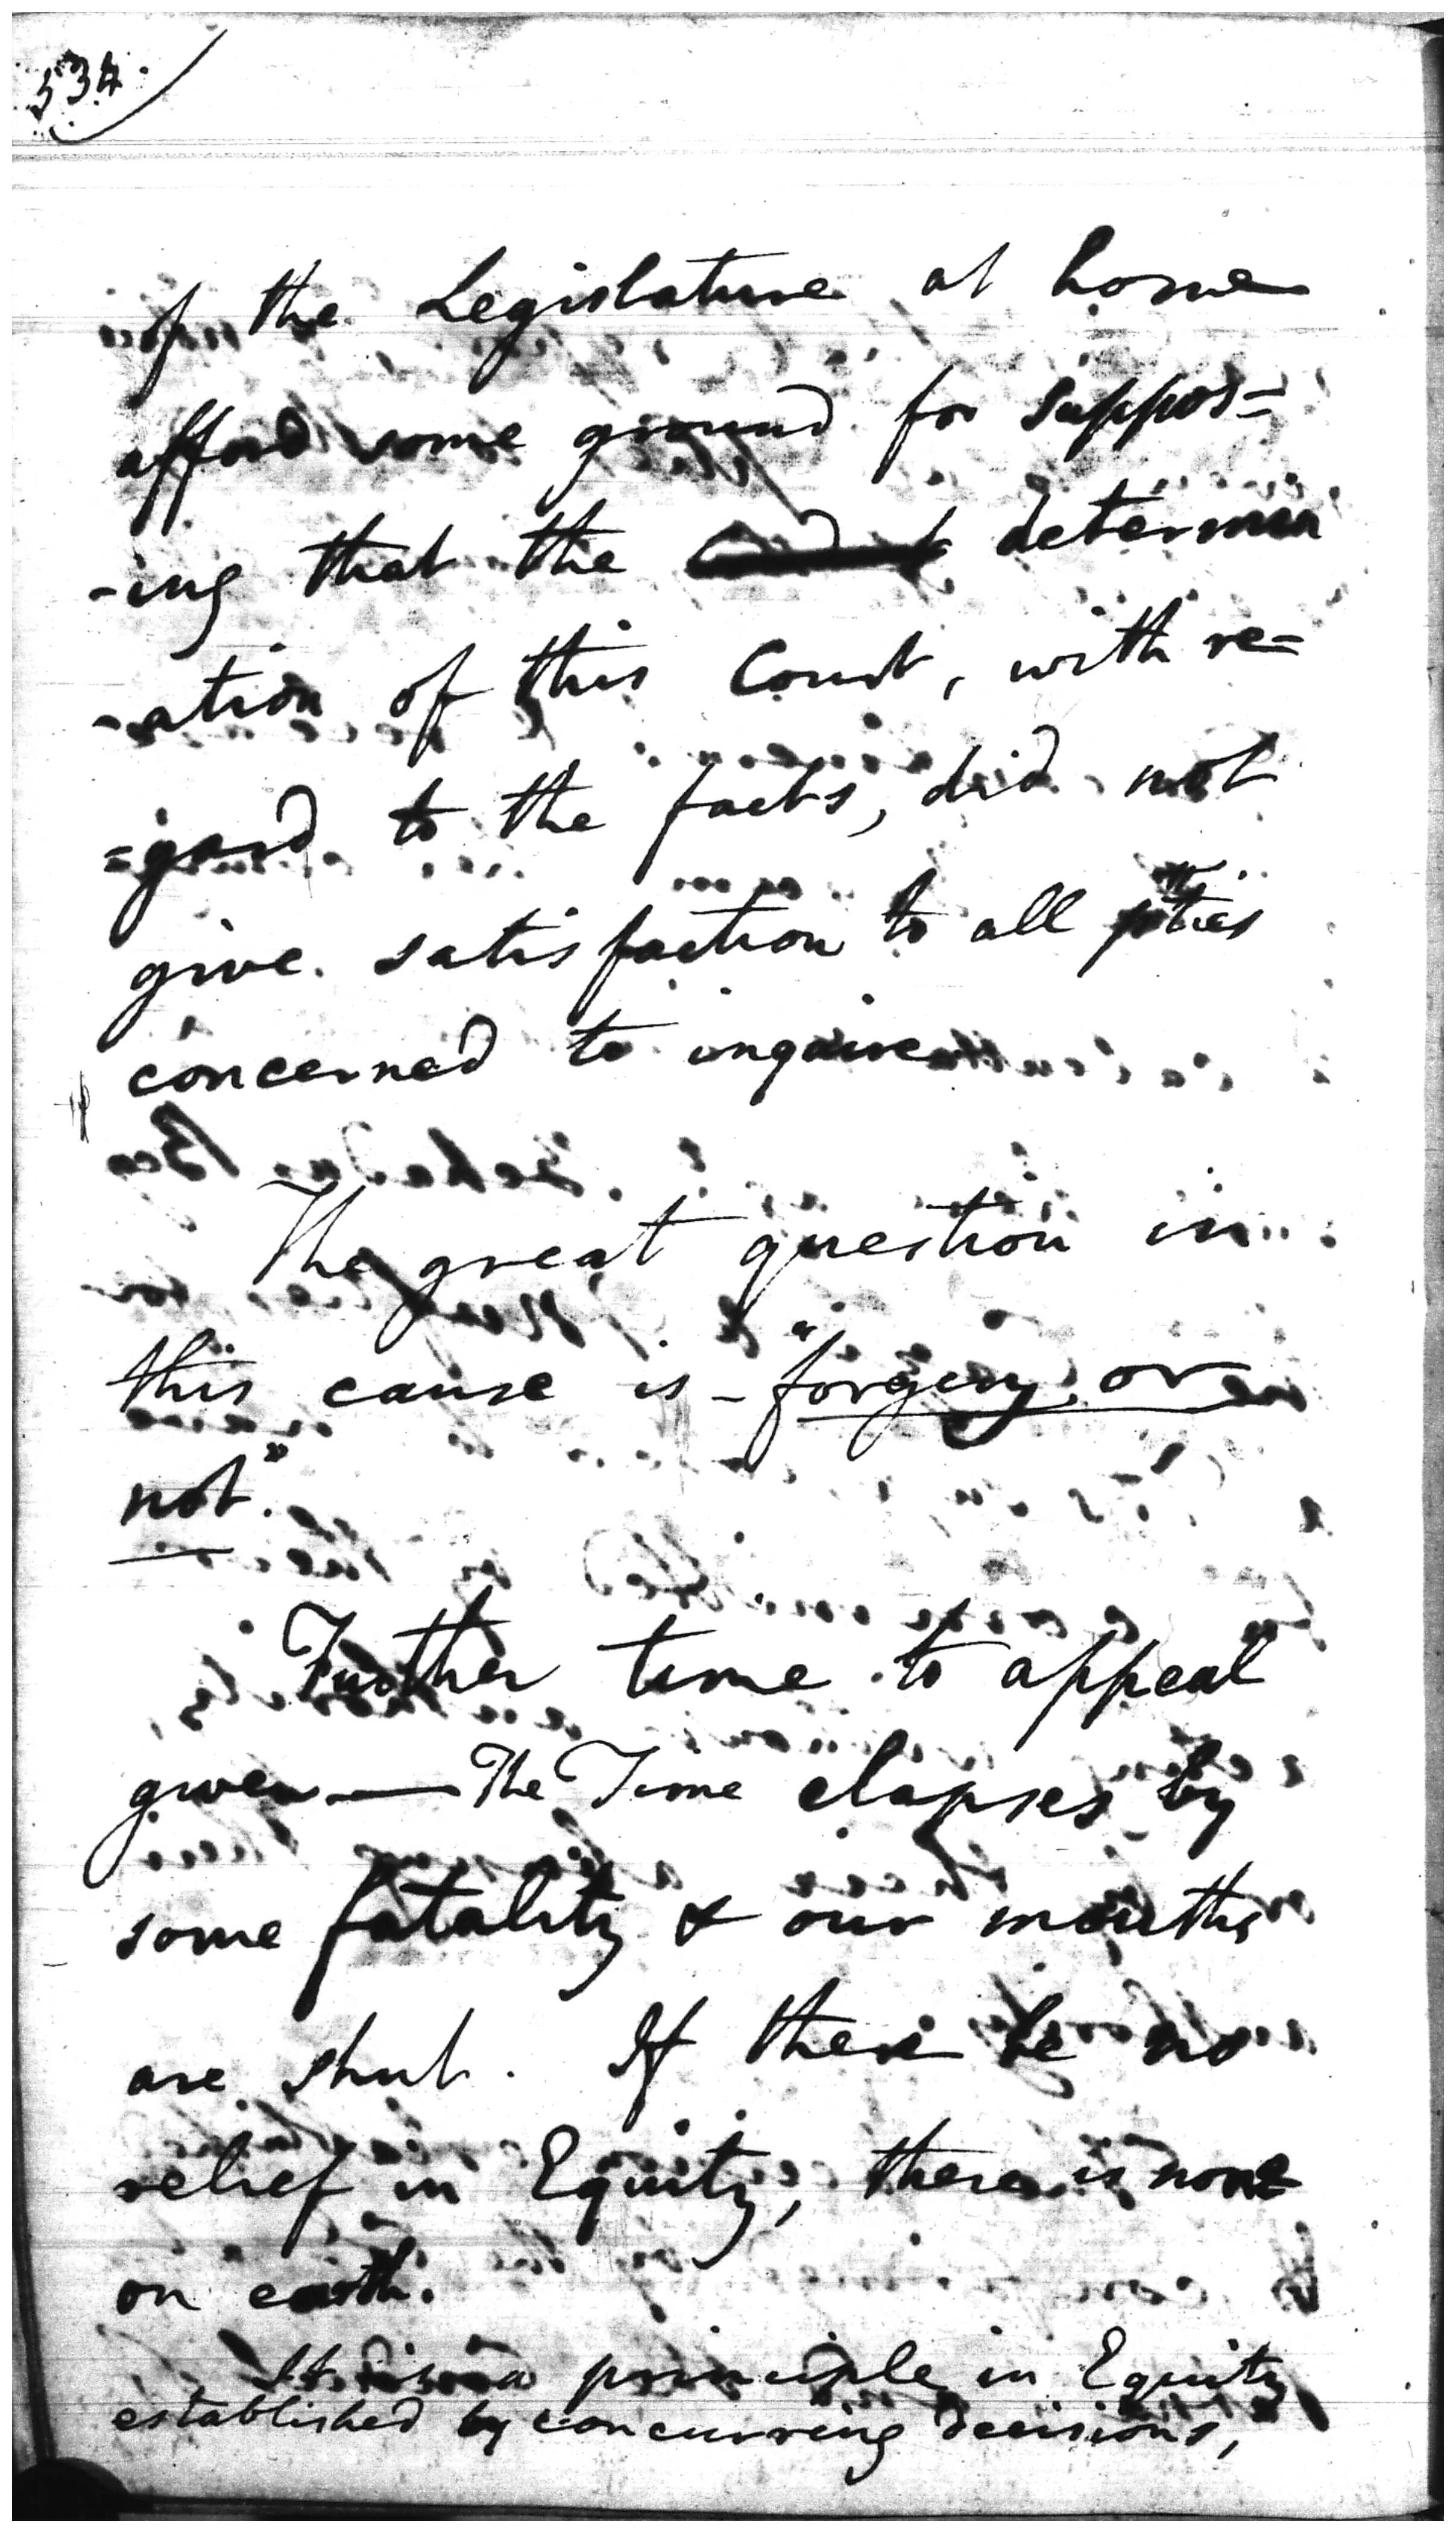 334.
of the Legislature at home
afford some ground for suppos=
-ing that the determin
-ation of this Court, with re=
=gard to the facts, did not
give satisfaction to all pties
concerned to inquire
The great question in
this cause is - "forgery or
not."
Further time to appeal
given — The Time elapses by
some fatality & our mouths
are shut. If there be no
relief in Equity, there is none
on earth.
It is a principle in Equity
established by concurring decisions,